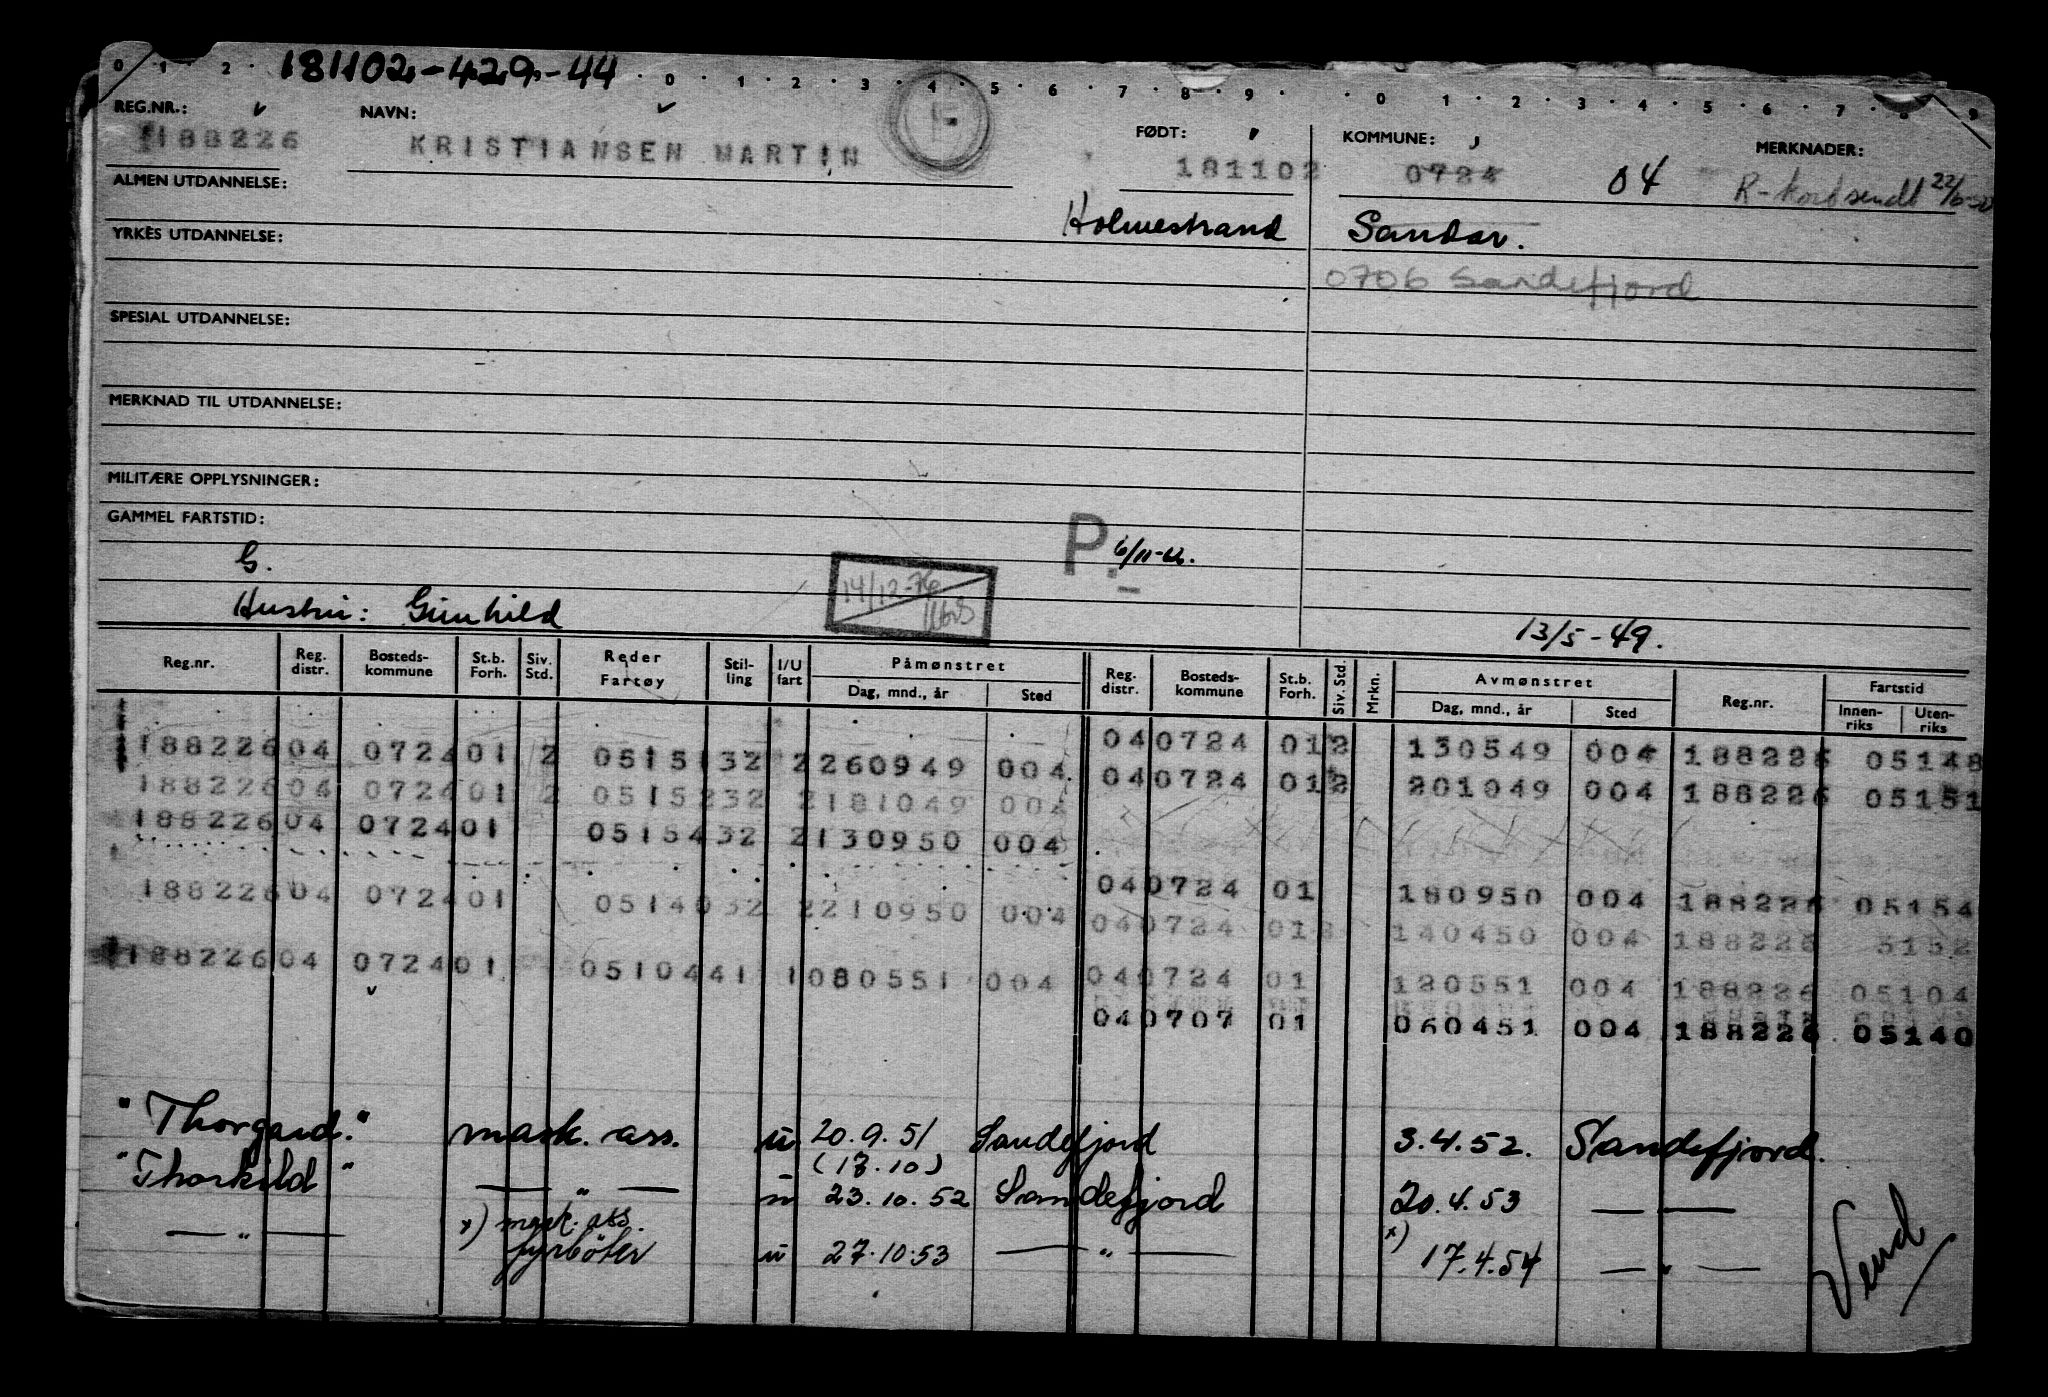 181102-429-44
0 1 2 0 1 2 3 4 5 6 7 8 9 0 1 2 3 4 5 6 7 8 9
REG.NR.: NAVN: FØDT: KOMMUNE: MERKNADER:
188226 KRISTIANSEN MARTIN F 181102 0724 04 R-kort sendt
ALMEN UTDANNELSE:
Holmestrand Sandar.
YRKES UTDANNELSE:
0706 Sandefjord
SPESIAL UTDANNELSE:
MERKNAD TIL UTDANNELSE:
MILITÆRE OPPLYSNINGER:
GAMMEL FARTSTID:
G. P. 6/11-62.
14/12-76
Hustru: Gunhild 13/5-49.
Reg.nr. Reg. distr. Bosteds-kommune St.b. Forh. Siv. Std. Reder Fartøy Stil-ling I/U fart Påmønstret Dag, mnd., år Sted Reg. distr. Bosteds-kommune St.b. Forh. Siv. Std. Mrkn. Avmønstret Dag, mnd., år Sted Reg.nr. Fartstid Innen-riks Uten-riks
188226 04 0724 01 2 05151 32 2 260949 004 04 0724 01 2 130549 004 188226 05148
188226 04 0724 01 2 05152 32 2 181049 004 04 0724 01 2 201049 004 188226 05151
188226 04 0724 01 05154 32 2 130950 004
04 0724 01 180950 004 188226 05154
188226 04 0724 01 05140 32 2 210950 004
04 0724 01 140450 004 188226 5152
188226 04 0724 01 05104 41 1 080551 004 04 0724 01 120551 004 188226 05104
04 0707 01 060451 004 188226 05140
"Thorgard." mask. ass. u 20.9.51 Sandefjord 3.4.52. Sandefjord.
(17.10)
"Thorkild" — " — u 23.10.52 Sandefjord 20.4.53 — —
— " — x) mask. ass. x)
fyrbøter u 27.10.53 — " — 17.4.54 — " —
Vend